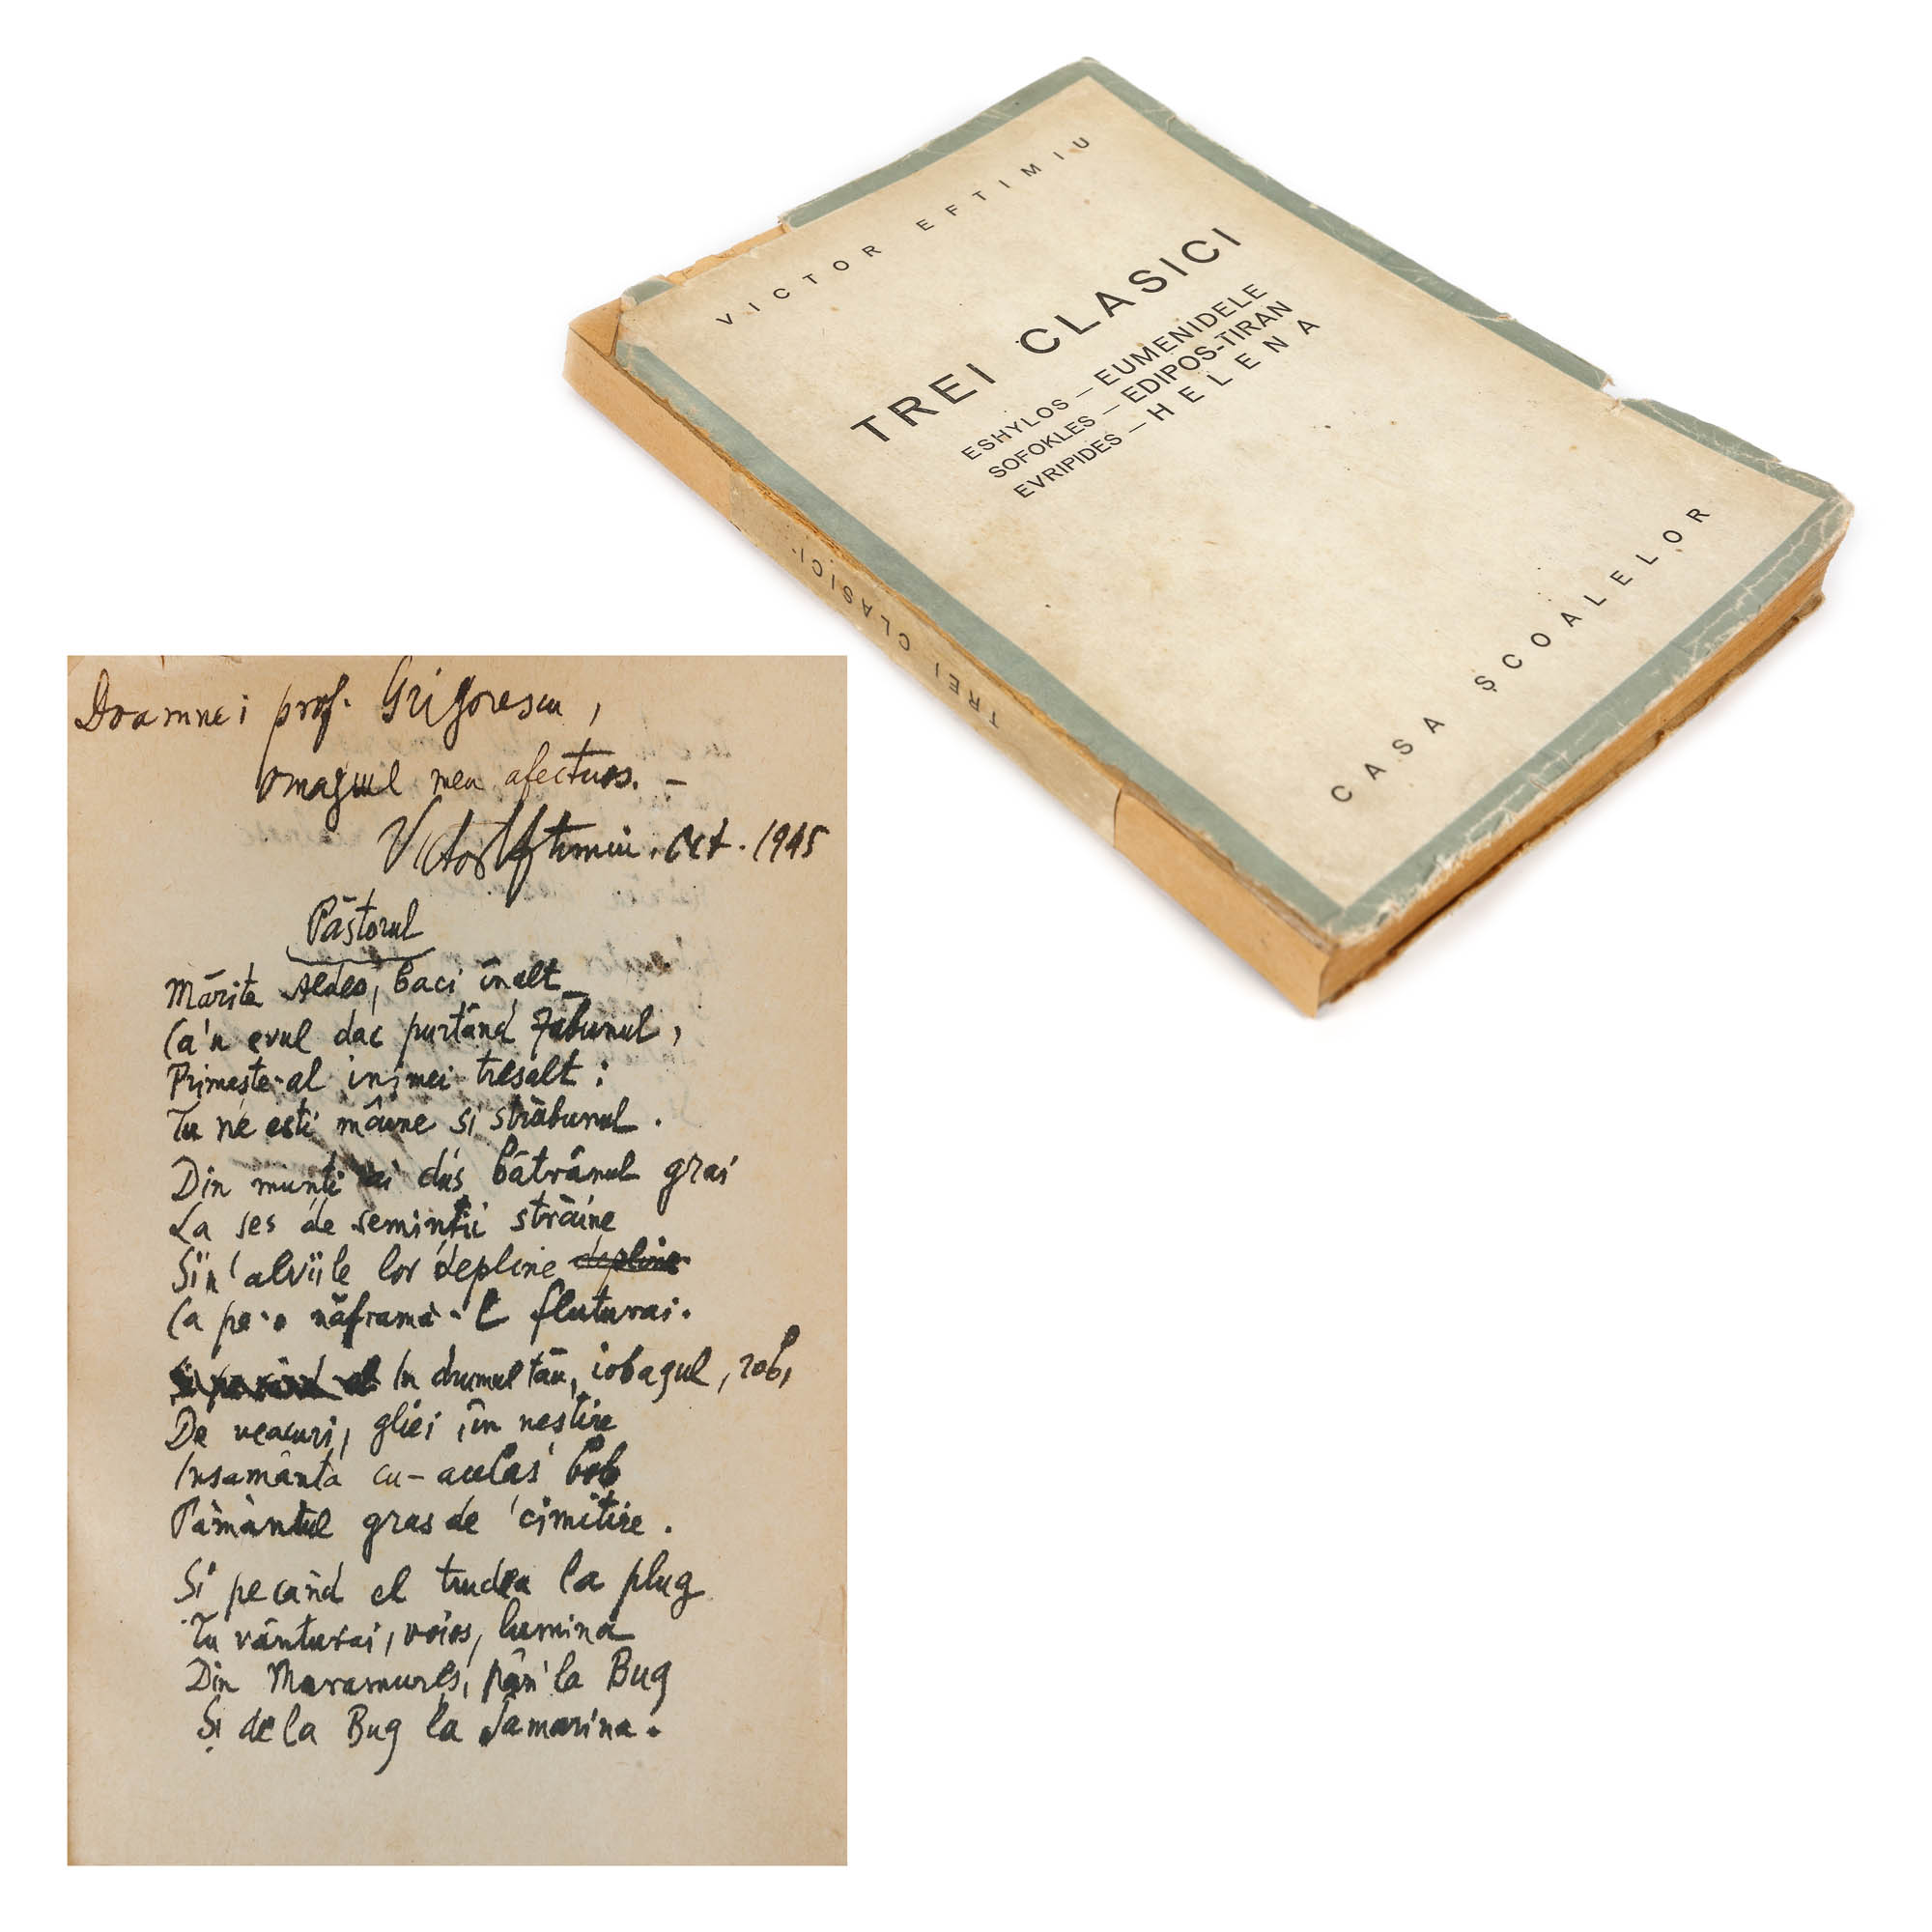 VICTOR EFTIMIU
TREI CLASICI
ESHYLOS — EUMENIDELE
SOFOKLES — EDIPOS-TIRAN
EVRIPIDES — HELENA
CASA ȘCOALELOR
TREI CLASICI
Doamnei prof. Grigorescu,
omagiul meu afectuos. –
Victor Eftimiu. Oct. 1945
Păstorul
Mărite baci înalt
Ca'n evul dac purtând zăbunul,
Primește-al inimei tresalt:
Tu ne ești mâine si străbunul.
Din munți ai dus bătrânul grai
La ses de seminții străine
Si'n alviile lor depline
Ca pe-o năframă-l fluturai.
In drumul tău, iobagul, rob,
De veacuri, gliei, în neștire
Insamânta cu-acelas bob
Pământul gras de cimitire.
Si pe când el trudea la plug
Tu vânturai, voios, lumina
Din Maramureș, pân' la Bug
Și de la Bug la Samarina.